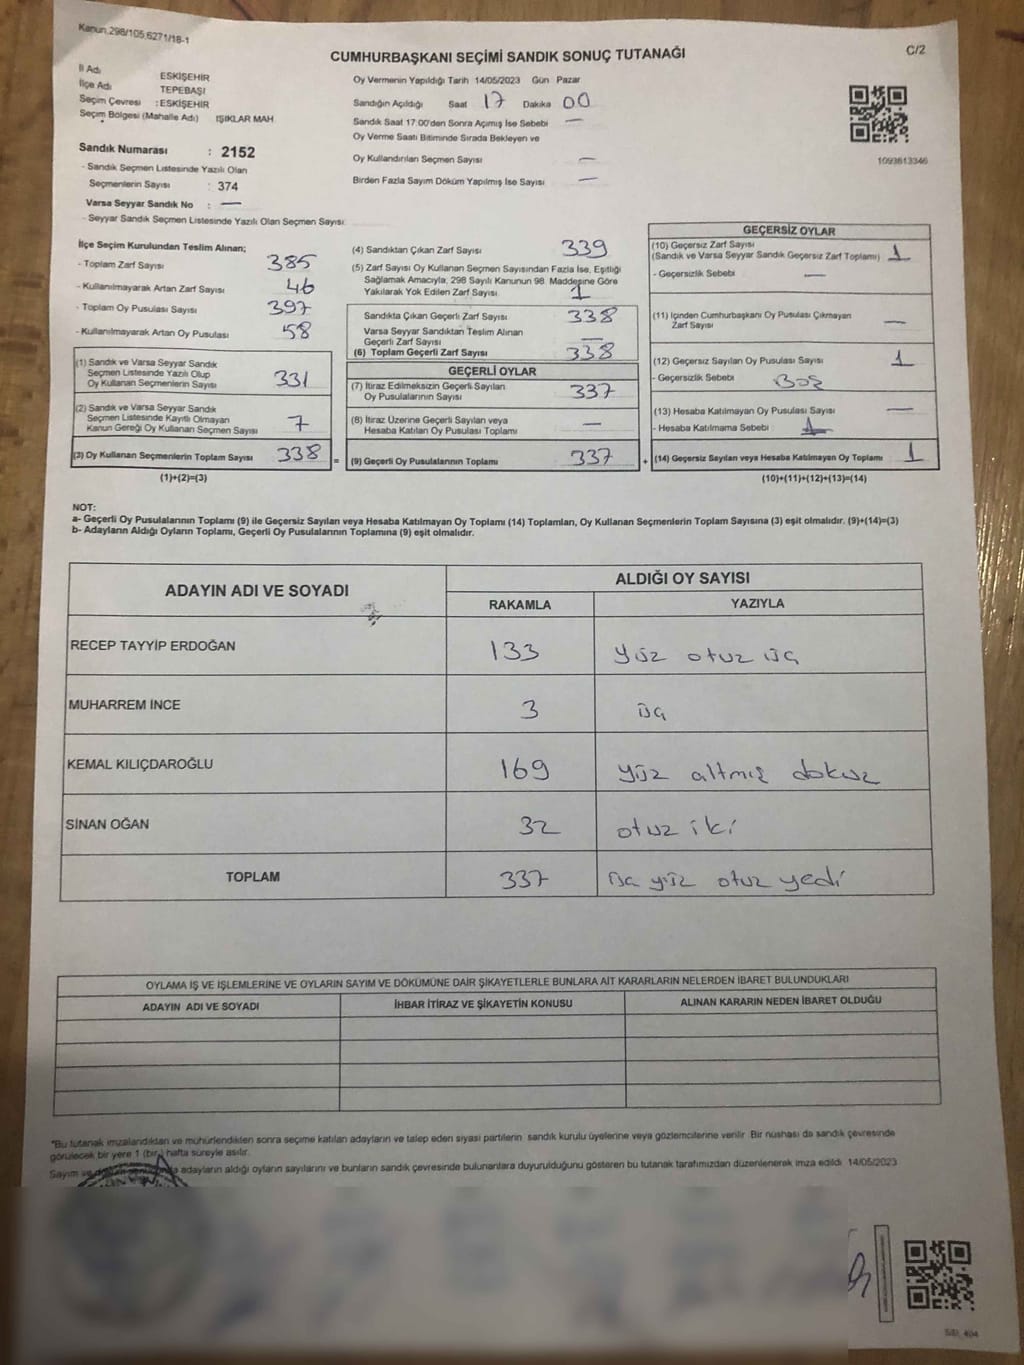 Kanun.298/105,6271/18-1
C/2
CUMHURBAŞKANI SEÇİMİ SANDIK SONUÇ TUTANAĞI
İl Adı ESKİŞEHİR
İlçe Adı TEPEBAŞI
Seçim Çevresi : ESKİŞEHİR
Seçim Bölgesi (Mahalle Adı) IŞIKLAR MAH.
Sandık Numarası : 2152
- Sandık Seçmen Listesinde Yazılı Olan
Seçmenlerin Sayısı : 374
Varsa Seyyar Sandık No : —
- Seyyar Sandık Seçmen Listesinde Yazılı Olan Seçmen Sayısı:
Oy Vermenin Yapıldığı Tarih 14/05/2023 Gün Pazar
Sandığın Açıldığı Saat 17 Dakika 00
Sandık Saat 17:00'den Sonra Açımış İse Sebebi —
Oy Verme Saati Bitiminde Sırada Bekleyen ve
Oy Kullandırılan Seçmen Sayısı —
Birden Fazla Sayım Döküm Yapılmış İse Sayısı —
1093613346
İlçe Seçim Kurulundan Teslim Alınan;
- Toplam Zarf Sayısı 385
- Kullanılmayarak Artan Zarf Sayısı 46
- Toplam Oy Pusulası Sayısı 397
- Kullanılmayarak Artan Oy Pusulası 58
(1) Sandık ve Varsa Seyyar Sandık
Seçmen Listesinde Yazılı Olup
Oy Kullanan Seçmenlerin Sayısı 331
(2) Sandık ve Varsa Seyyar Sandık
Seçmen Listesinde Kayıtlı Olmayan
Kanun Gereği Oy Kullanan Seçmen Sayısı 7
(3) Oy Kullanan Seçmenlerin Toplam Sayısı 338 =
(1)+(2)=(3)
(4) Sandıktan Çıkan Zarf Sayısı 339
(5) Zarf Sayısı Oy Kullanan Seçmen Sayısından Fazla İse, Eşitliği
Sağlamak Amacıyla, 298 Sayılı Kanunun 98. Maddesine Göre
Yakılarak Yok Edilen Zarf Sayısı 1
Sandıkta Çıkan Geçerli Zarf Sayısı 338
Varsa Seyyar Sandıktan Teslim Alınan
Geçerli Zarf Sayısı —
(6) Toplam Geçerli Zarf Sayısı 338
GEÇERLİ OYLAR
(7) İtiraz Edilmeksizin Geçerli Sayılan
Oy Pusulalarının Sayısı 337
(8) İtiraz Üzerine Geçerli Sayılan veya
Hesaba Katılan Oy Pusulası Toplamı —
(9) Geçerli Oy Pusulalarının Toplamı 337 +
GEÇERSİZ OYLAR
(10) Geçersiz Zarf Sayısı
(Sandık ve Varsa Seyyar Sandık Geçersiz Zarf Toplamı) 1
- Geçersizlik Sebebi —
(11) İçinden Cumhurbaşkanı Oy Pusulası Çıkmayan
Zarf Sayısı —
(12) Geçersiz Sayılan Oy Pusulası Sayısı 1
- Geçersizlik Sebebi Boş
(13) Hesaba Katılmayan Oy Pusulası Sayısı —
- Hesaba Katılmama Sebebi 1
(14) Geçersiz Sayılan veya Hesaba Katılmayan Oy Toplamı 1
(10)+(11)+(12)+(13)=(14)
NOT:
a- Geçerli Oy Pusulalarının Toplamı (9) ile Geçersiz Sayılan veya Hesaba Katılmayan Oy Toplamı (14) Toplamları, Oy Kullanan Seçmenlerin Toplam Sayısına (3) eşit olmalıdır. (9)+(14)=(3)
b- Adayların Aldığı Oyların Toplamı, Geçerli Oy Pusulalarının Toplamına (9) eşit olmalıdır.
ADAYIN ADI VE SOYADI
ALDIĞI OY SAYISI
RAKAMLA YAZIYLA
RECEP TAYYİP ERDOĞAN 133 yüz otuz üç
MUHARREM İNCE 3 üç
KEMAL KILIÇDAROĞLU 169 yüz altmış dokuz
SİNAN OĞAN 32 otuz iki
TOPLAM 337 üç yüz otuz yedi
OYLAMA İŞ VE İŞLEMLERİNE VE OYLARIN SAYIM VE DÖKÜMÜNE DAİR ŞİKAYETLERLE BUNLARA AİT KARARLARIN NELERDEN İBARET BULUNDUKLARI
ADAYIN ADI VE SOYADI İHBAR İTİRAZ VE ŞİKAYETİN KONUSU ALINAN KARARIN NEDEN İBARET OLDUĞU
"Bu tutanak imzalandıktan ve mühürlendikten sonra seçime katılan adayların ve talep eden siyasi partilerin sandık kurulu üyelerine veya gözlemcilerine verilir. Bir nüshası da sandık çevresinde
görülecek bir yere 1 (bir) hafta süreyle asılır.
Sayım ve adayların aldığı oyların sayılarını ve bunların sandık çevresinde bulunanlara duyurulduğunu gösteren bu tutanak tarafımızdan düzenlenerek imza edildi 14/05/2023